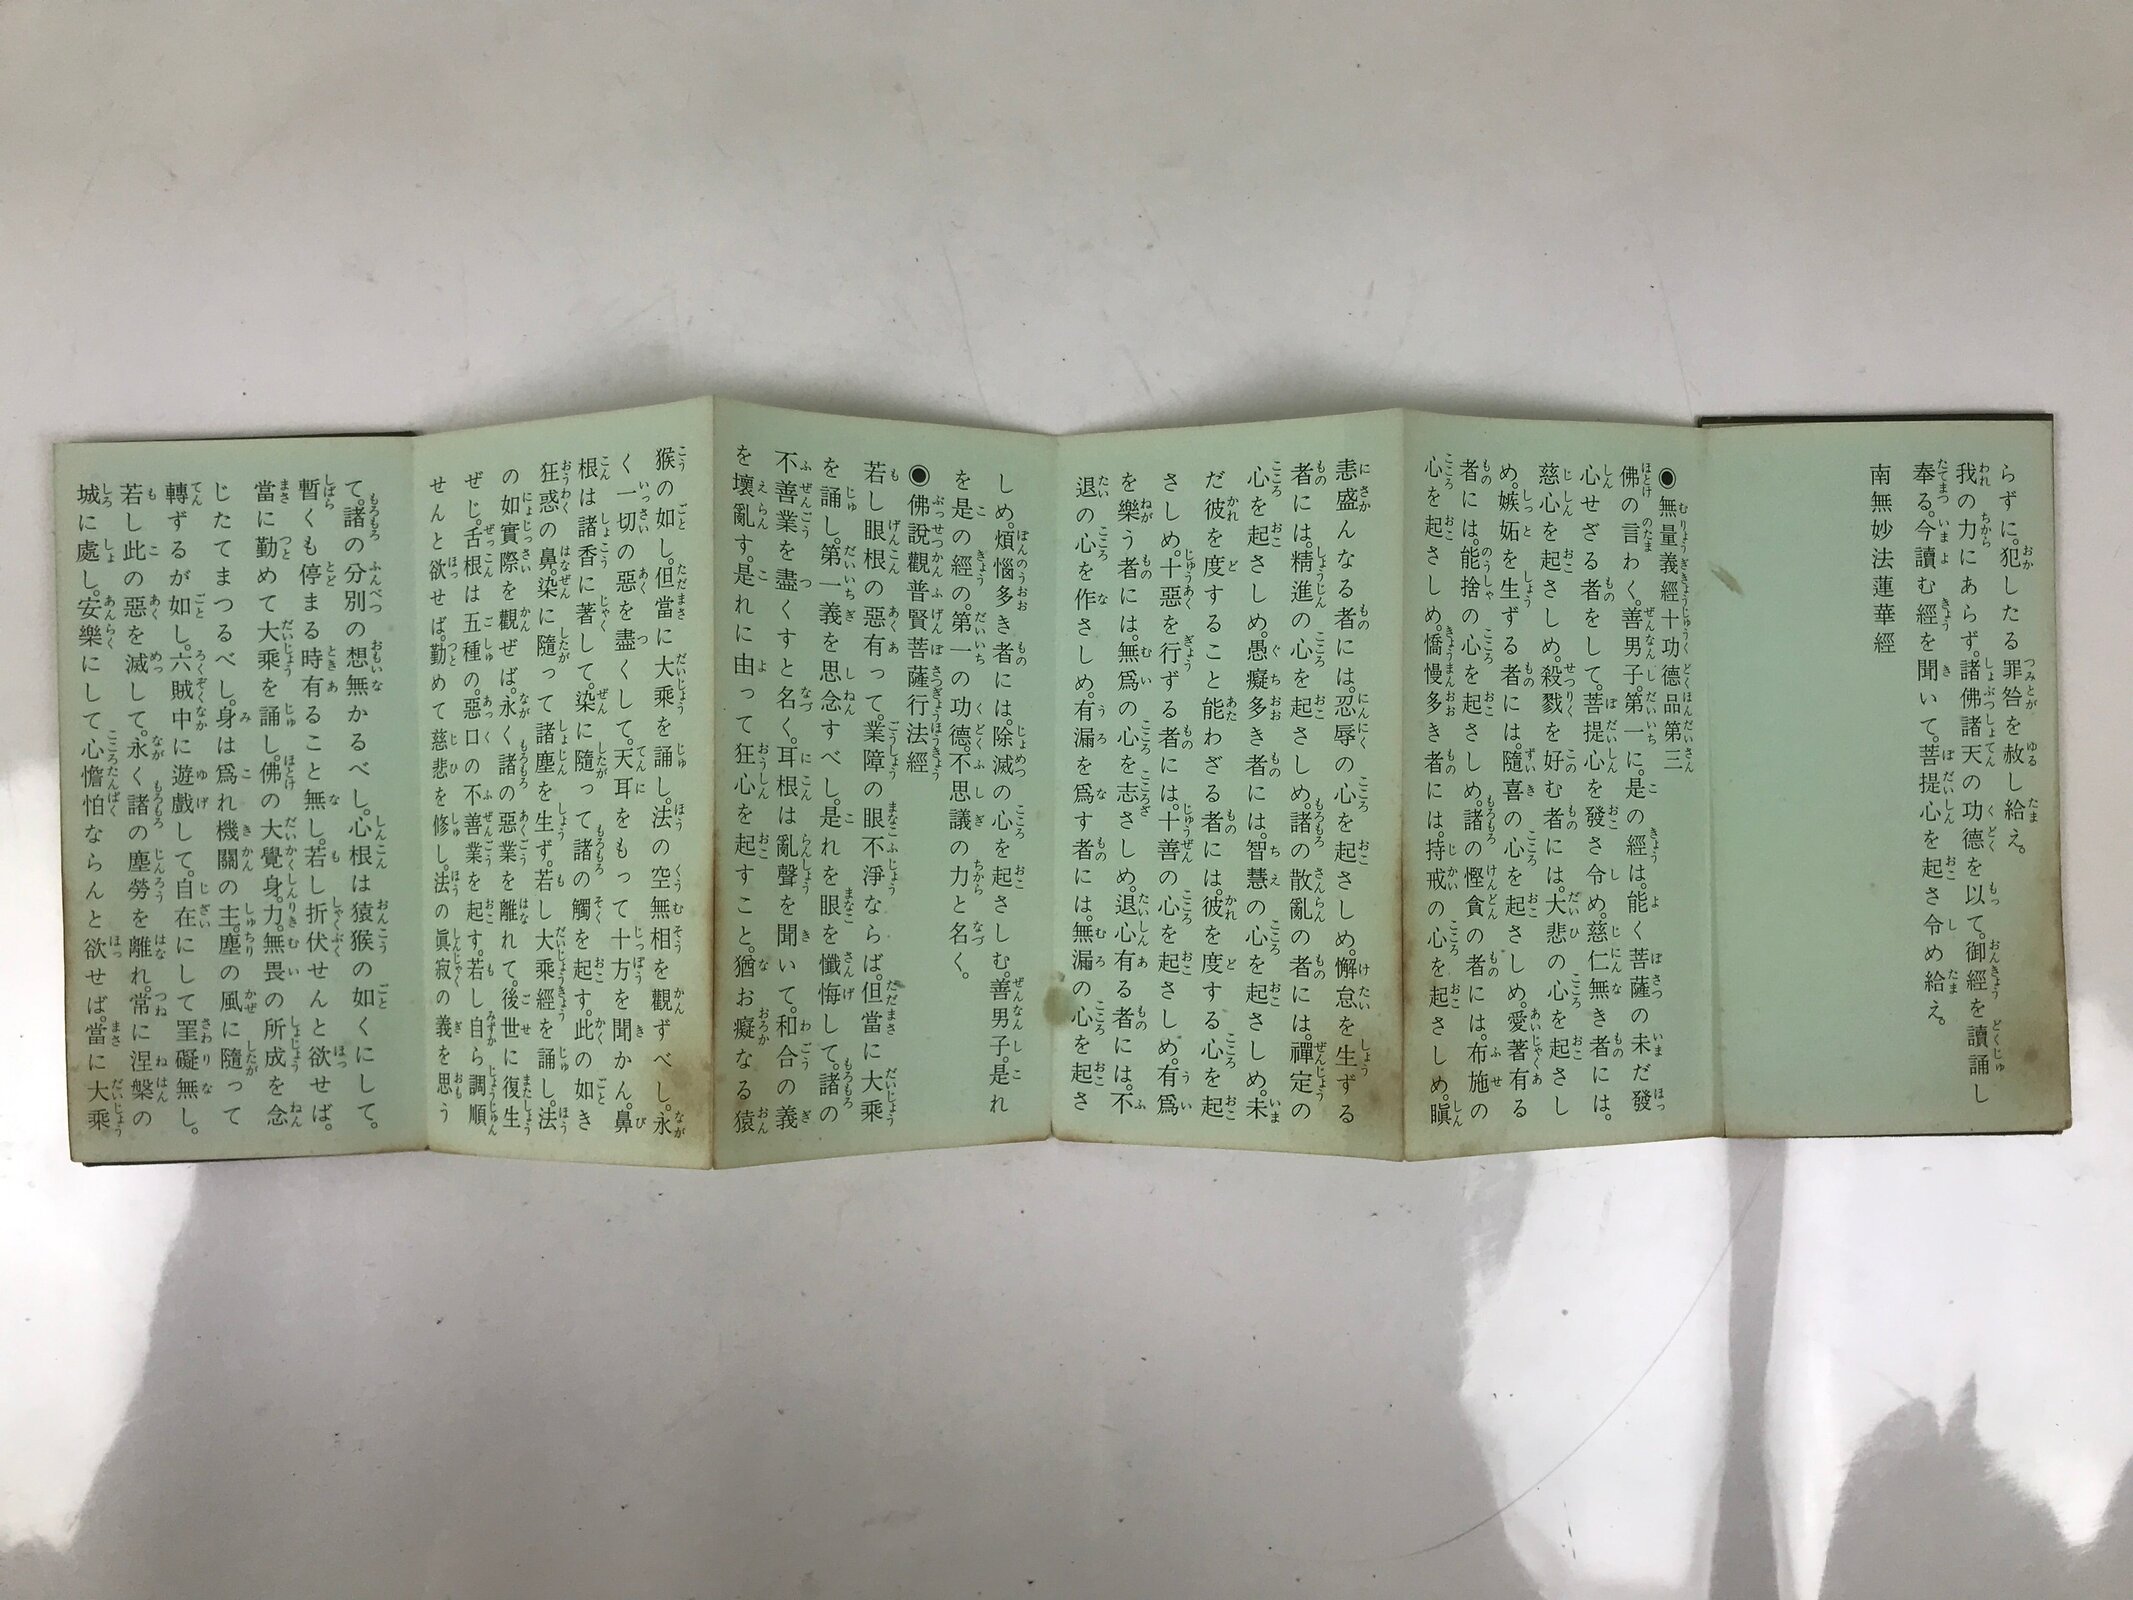 らずに。犯したる罪咎を赦し給え。
我の力にあらず。諸佛諸天の功德を以て。御經を讀誦し
奉る。今讀む經を聞いて。菩提心を起さ令め給え。
南無妙法蓮華經
◉無量義經十功德品第三
佛の言わく。善男子。第一に。是の經は。能く菩薩の未だ發
心せざる者をして。菩提心を發さ令め。慈仁無き者には。
慈心を起さしめ。殺戮を好む者には。大悲の心を起さし
め。嫉妬を生ずる者には。隨喜の心を起さしめ。愛著有る
者には。能捨の心を起さしめ。諸の慳貪の者には。布施の
心を起さしめ。憍慢多き者には。持戒の心を起さしめ。瞋
恚盛んなる者には。忍辱の心を起さしめ。懈怠を生ずる
者には。精進の心を起さしめ。諸の散亂の者には。禪定の
心を起さしめ。愚癡多き者には。智慧の心を起さしめ。未
だ彼を度すること能わざる者には。彼を度する心を起
さしめ。十惡を行ずる者には。十善の心を起さしめ。有爲
を樂う者には。無爲の心を志さしめ。退心有る者には。不
退の心を作さしめ。有漏を爲す者には。無漏の心を起さ
しめ。煩惱多き者には。除滅の心を起さしむ。善男子。是れ
を是の經の。第一の功德。不思議の力と名く。
◉佛說觀普賢菩薩行法經
若し眼根の惡有って。業障の眼不淨ならば。但當に大乘
を誦し。第一義を思念すべし。是れを眼を懺悔して。諸の
不善業を盡くすと名く。耳根は亂聲を聞いて。和合の義
を壞亂す。是れに由って狂心を起すこと。猶お癡なる猿
猴の如し。但當に大乘を誦し。法の空無相を觀ずべし。永
く一切の惡を盡くして。天耳をもって十方を聞かん。鼻
根は諸香に著して。染に隨って諸の觸を起す。此の如き
狂惑の鼻。染に隨って諸塵を生ず。若し大乘經を誦し。法
の如實際を觀ぜば。永く諸の惡業を離れて。後世に復生
ぜじ。舌根は五種の。惡口の不善業を起す。若し自ら調順
せんと欲せば。勤めて慈悲を修し。法の眞寂の義を思う
て。諸の分別の想無かるべし。心根は猿猴の如くにして。
暫くも停まる時有ること無し。若し折伏せんと欲せば。
當に勤めて大乘を誦し。佛の大覺身。力。無畏の所成を念
じたてまつるべし。身は爲れ機關の主。塵の風に隨って
轉ずるが如し。六賊中に遊戲して。自在にして罣礙無し。
若し此の惡を滅して。永く諸の塵勞を離れ。常に涅槃の
城に處し。安樂にして心憺怕ならんと欲せば。當に大乘